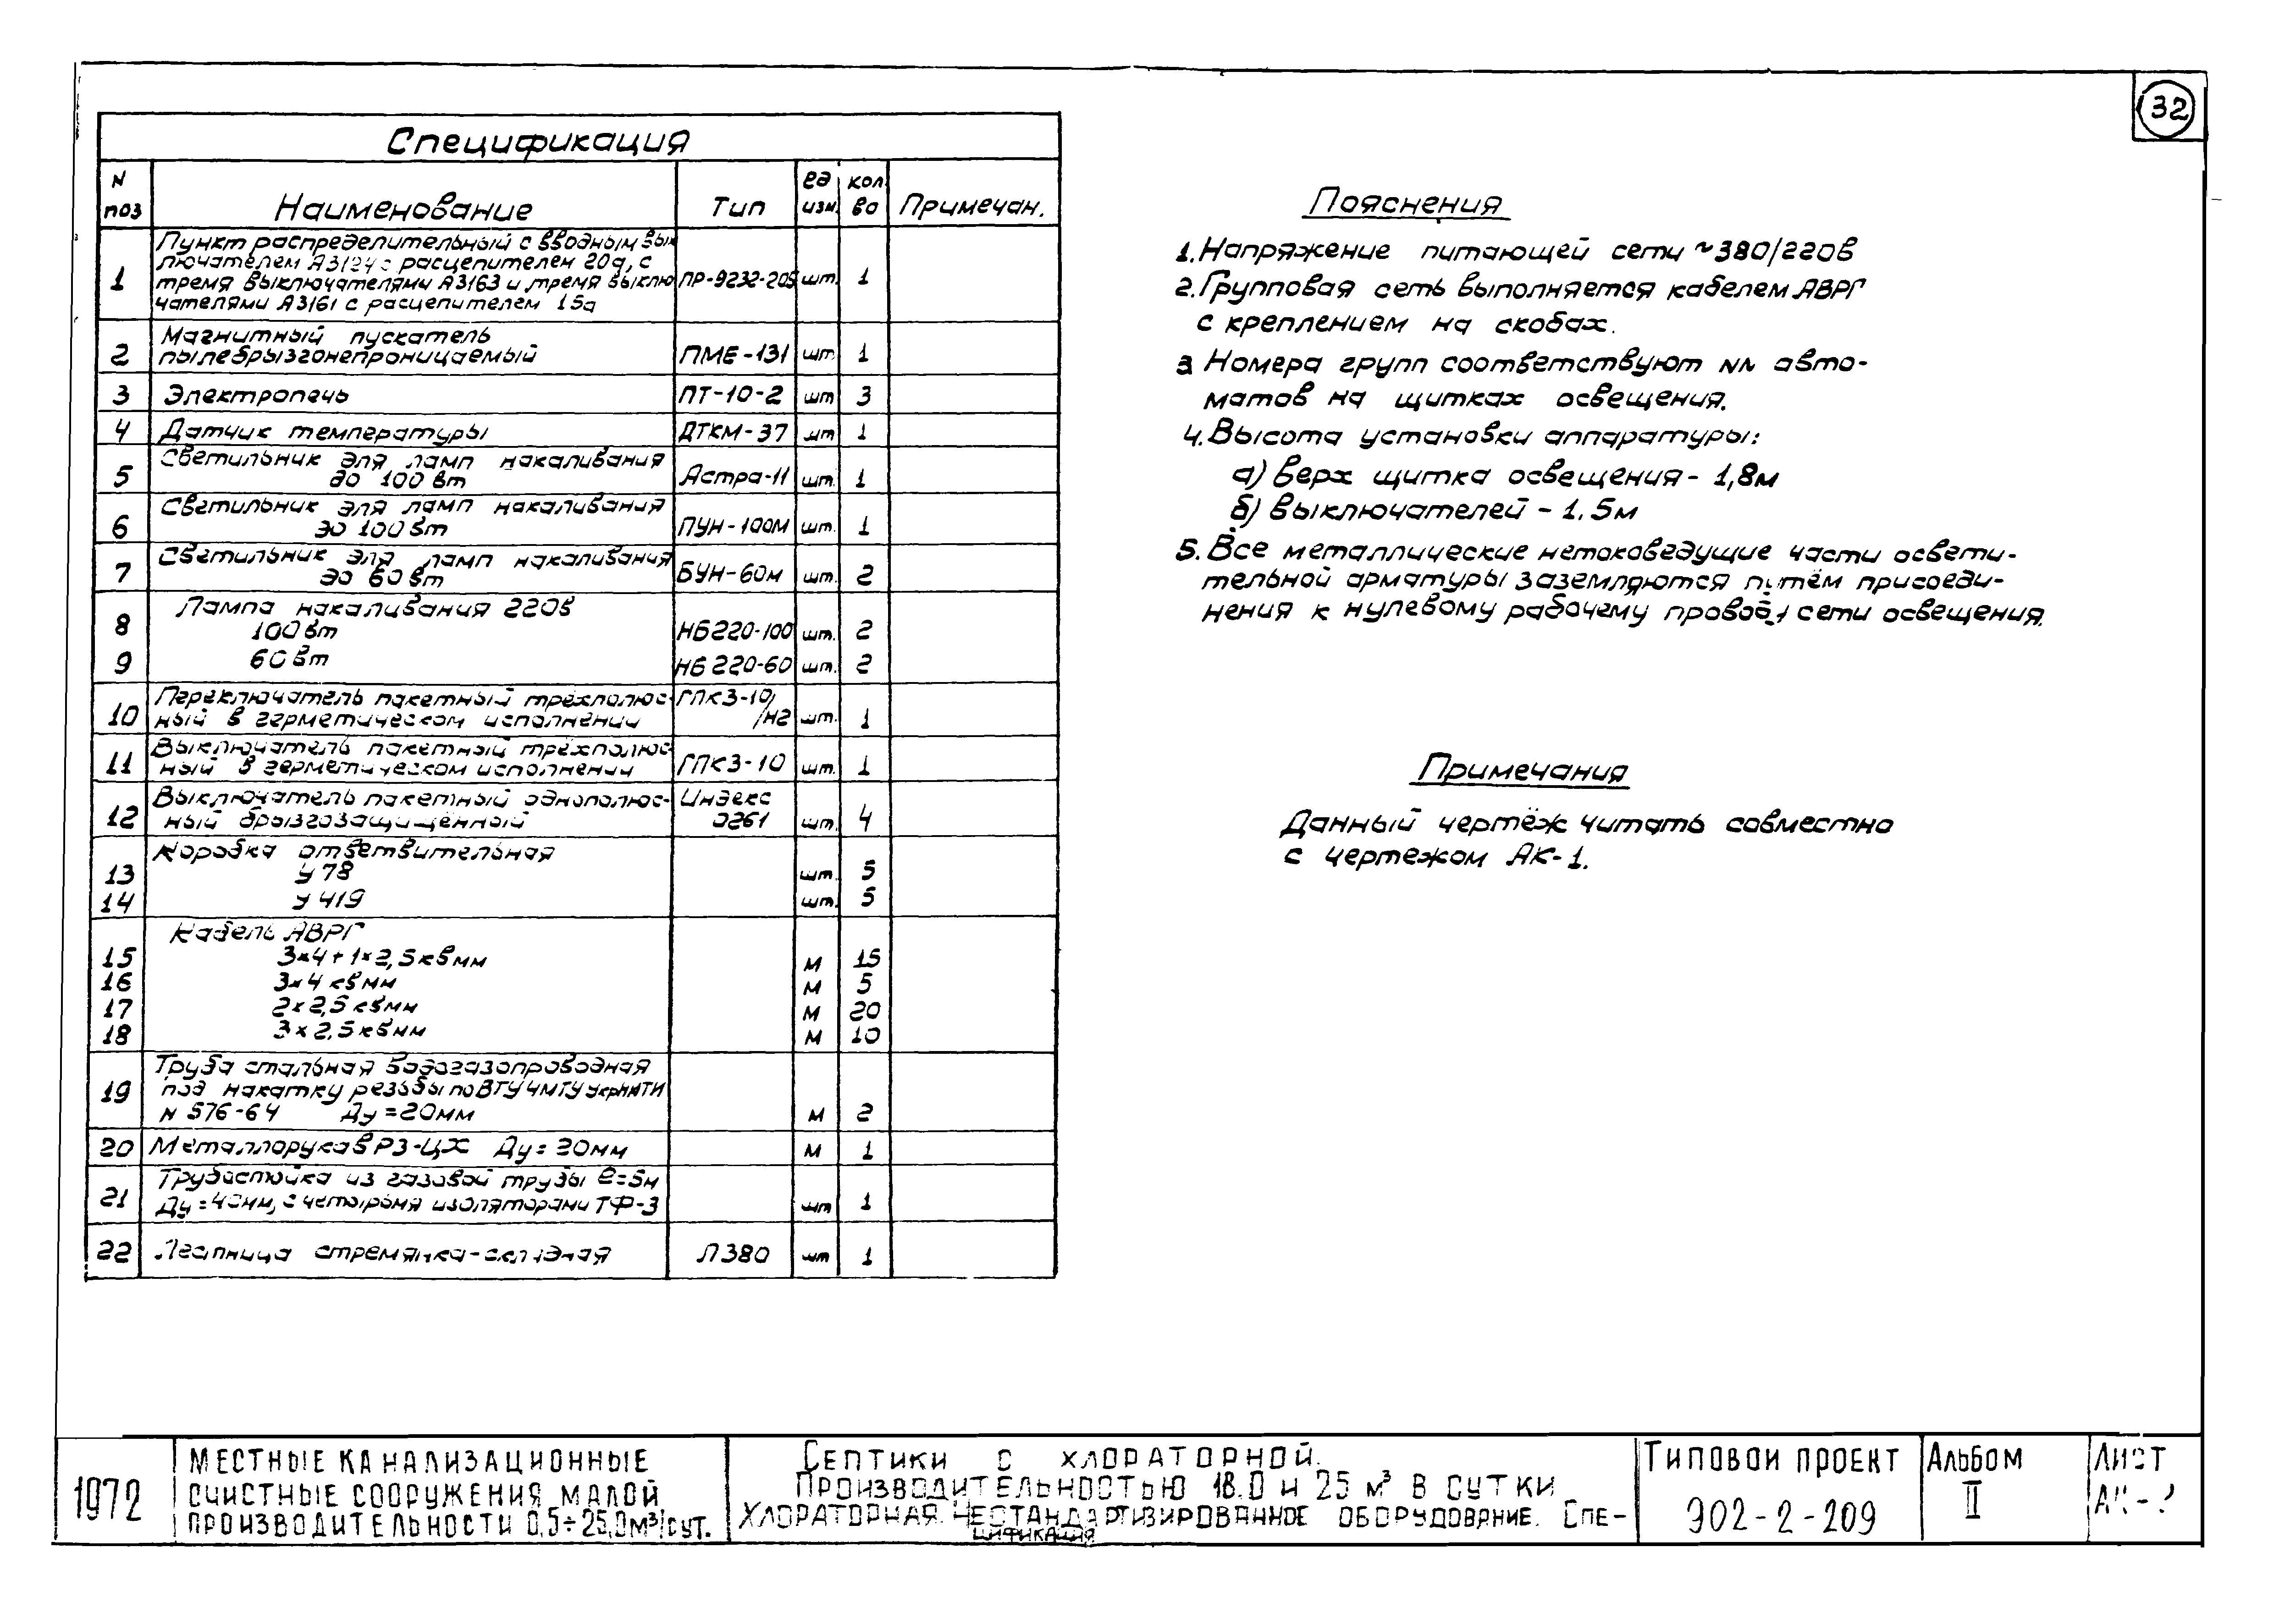 32
Спецификация
N поз Наименование Тип ед изм. кол. во Примечан.
Пункт распределительный с вводным вык
лючателем А3124 с расцепителем 20а, с
1 тремя выключателями А3163 и тремя выклю ПР-9232-205 шт. 1
чателями А3161 с расцепителем 15а
Магнитный пускатель
2 пылебрызгонепроницаемый ПМЕ-131 шт. 1
3 Электропечь ПТ-10-2 шт 3
4 Датчик температуры ДТКМ-37 шт 1
Светильник для ламп накаливания
5 до 100 вт Астра-11 шт. 1
Светильник для ламп накаливания
6 до 100 вт ПУН-100М шт. 1
Светильник для ламп накаливания
7 до 60 вт БУН-60м шт. 2
Лампа накаливания 220в
8 100 вт НБ220-100 шт. 2
9 60 вт НБ 220-60 шт. 2
Переключатель пакетный трёхполюс- ГПК3-10/
10 ный в герметическом исполнении /н2 шт. 1
Выключатель пакетный трёхполюс-
11 ный в герметическом исполнении ГПК3-10 шт. 1
Выключатель пакетный однополюс- Индекс
12 ный брызгозащищённый 0261 шт. 4
Коробка ответвительная
13 У 78 шт. 5
14 У 419 шт. 5
Кабель АВРГ
15 3×4+1×2,5 квмм м 15
16 3×4 квмм м 5
17 2×2,5 квмм м 20
18 3×2,5 квмм м 10
Труба стальная водогазопроводная
19 под накатку резьбы по ВТУ ЧМТУ УкрНИТИ
N 576-64 Ду=20мм м 2
20 Металлорукав РЗ-ЦХ Ду=20мм м 1
Трубостойка из газовой трубы ℓ=5м
21 Ду=40мм, с четырьмя изоляторами ТФ-3 шт 1
22 Лестница стремянка-складная Л380 шт 1
Пояснения
1. Напряжение питающей сети ~380/220в
2. Групповая сеть выполняется кабелем АВРГ
с креплением на скобах.
3 Номера групп соответствуют NN авто-
матов на щитках освещения.
4. Высота установки аппаратуры:
а) верх щитка освещения - 1,8м
б) выключателей - 1.5м
5. Все металлические нетоковедущие части освети-
тельной арматуры заземляются путём присоеди-
нения к нулевому рабочему проводу сети освещения.
Примечания
Данный чертёж читать совместно
с чертежом АК-1.
1972
МЕСТНЫЕ КАНАЛИЗАЦИОННЫЕ
ОЧИСТНЫЕ СООРУЖЕНИЯ МАЛОЙ
ПРОИЗВОДИТЕЛЬНОСТИ 0,5÷25,0м³/сут.
СЕПТИКИ С ХЛОРАТОРНОЙ.
ПРОИЗВОДИТЕЛЬНОСТЬЮ 18.0 и 25 м³ В СУТКИ
ХЛОРАТОРНАЯ. НЕСТАНДАРТИЗИРОВАННОЕ ОБОРУДОВАНИЕ. СПЕ-
ЦИФИКАЦИЯ
ТИПОВОЙ ПРОЕКТ
902-2-209
АЛЬБОМ
II
ЛИСТ